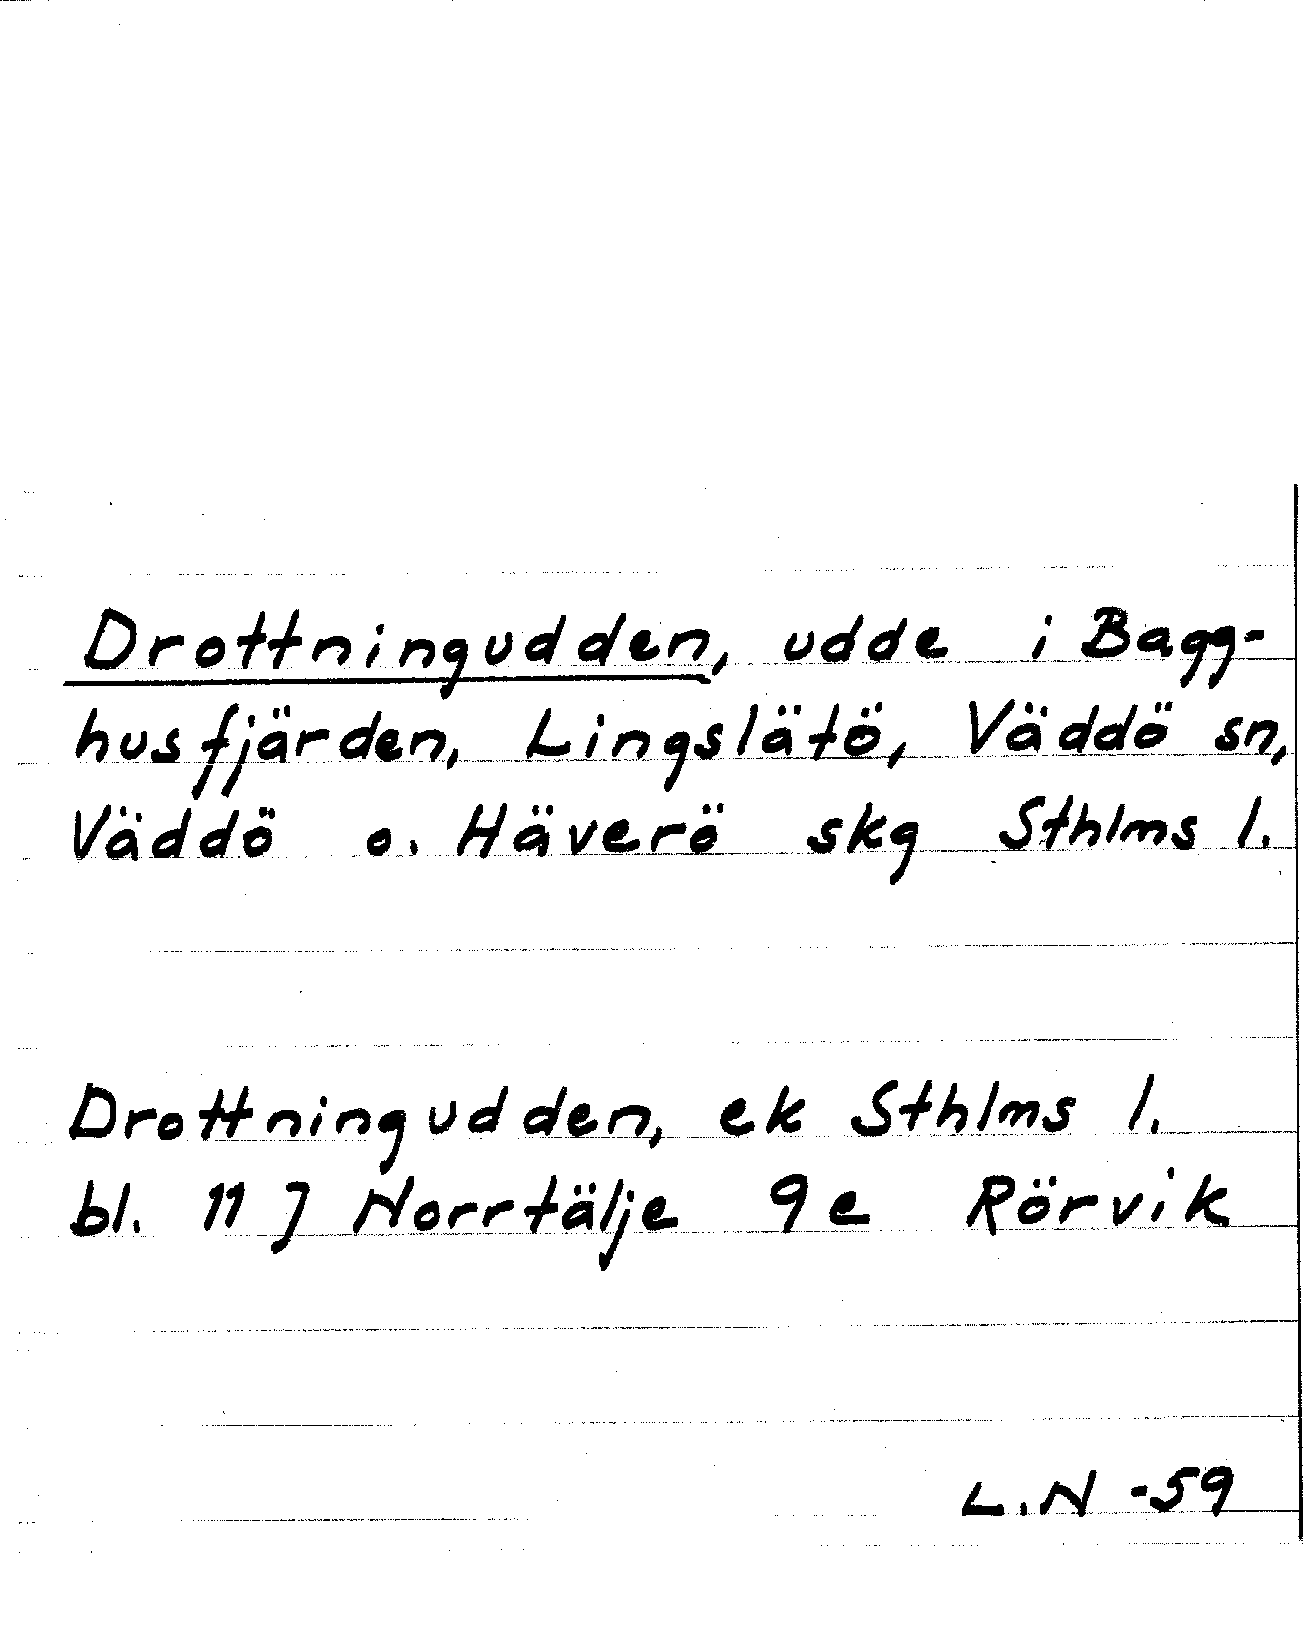 Drottningudden, udde i Bagg-
husfjärden, Lingslätö, Väddö sn,
Väddö o. Häverö skg Sthlms l.
Drottningudden, ek Sthlms l.
bl. 11 J Norrtälje 9e Rörvik
L.N -59